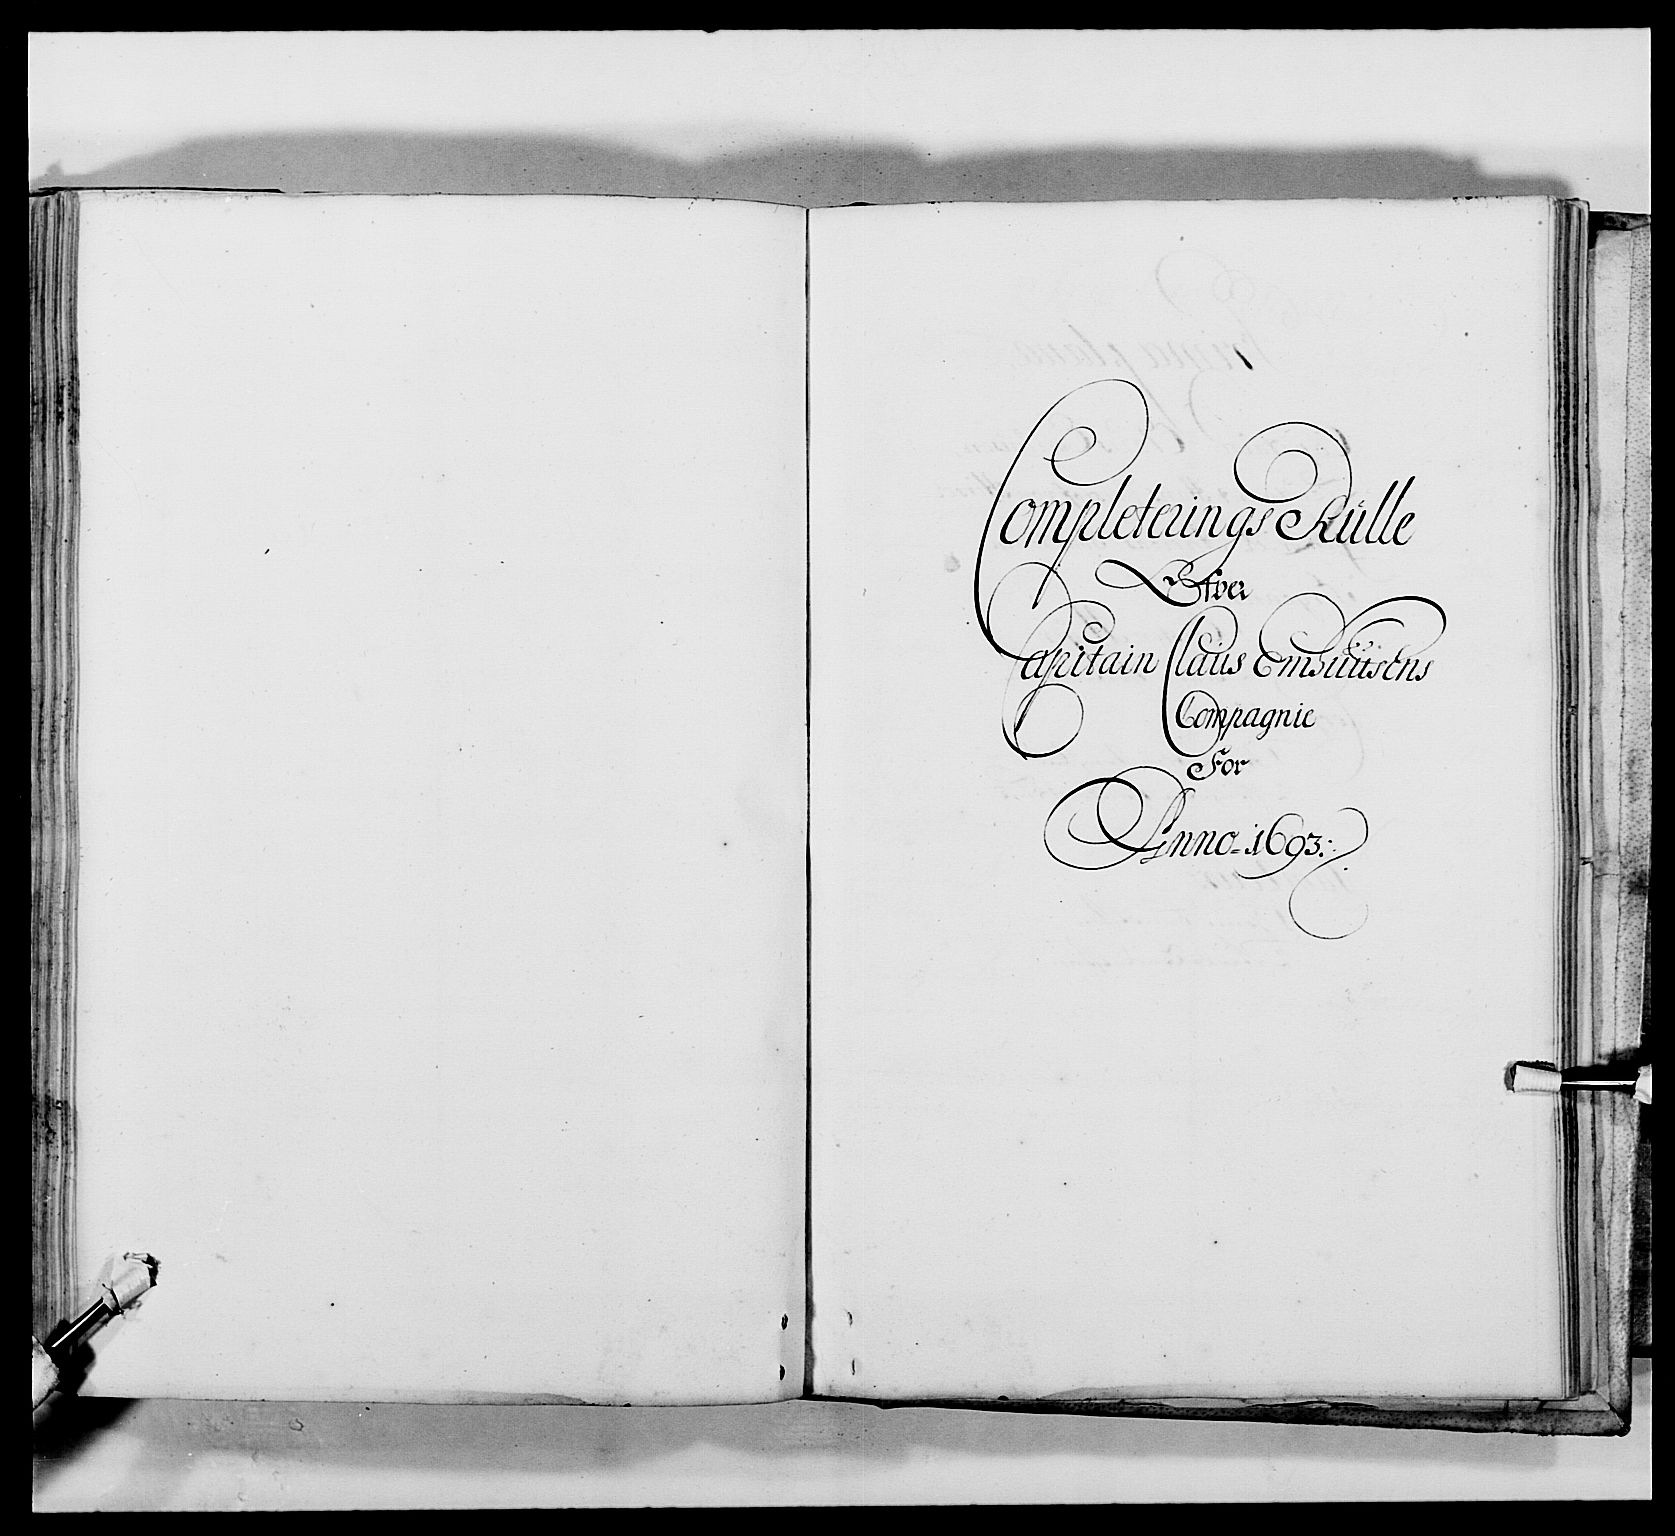 Completerings Rulle
Ofver
Capitain Claus
Compagnie
For
Anno = 1693 :